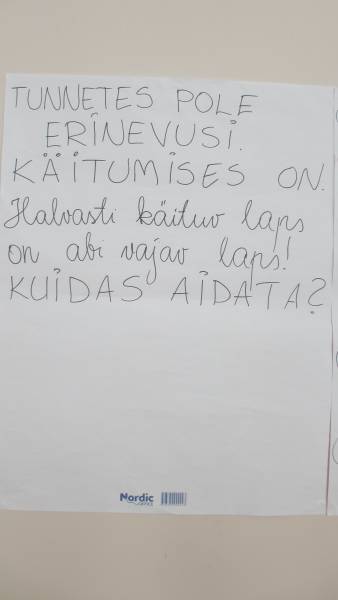 TUNNETES POLE
ERINEVUSI.
KÄITUMISES ON.
Halvasti käituv laps
on abi vajav laps!
KUIDAS AIDATA?
Nordic
OFFICE